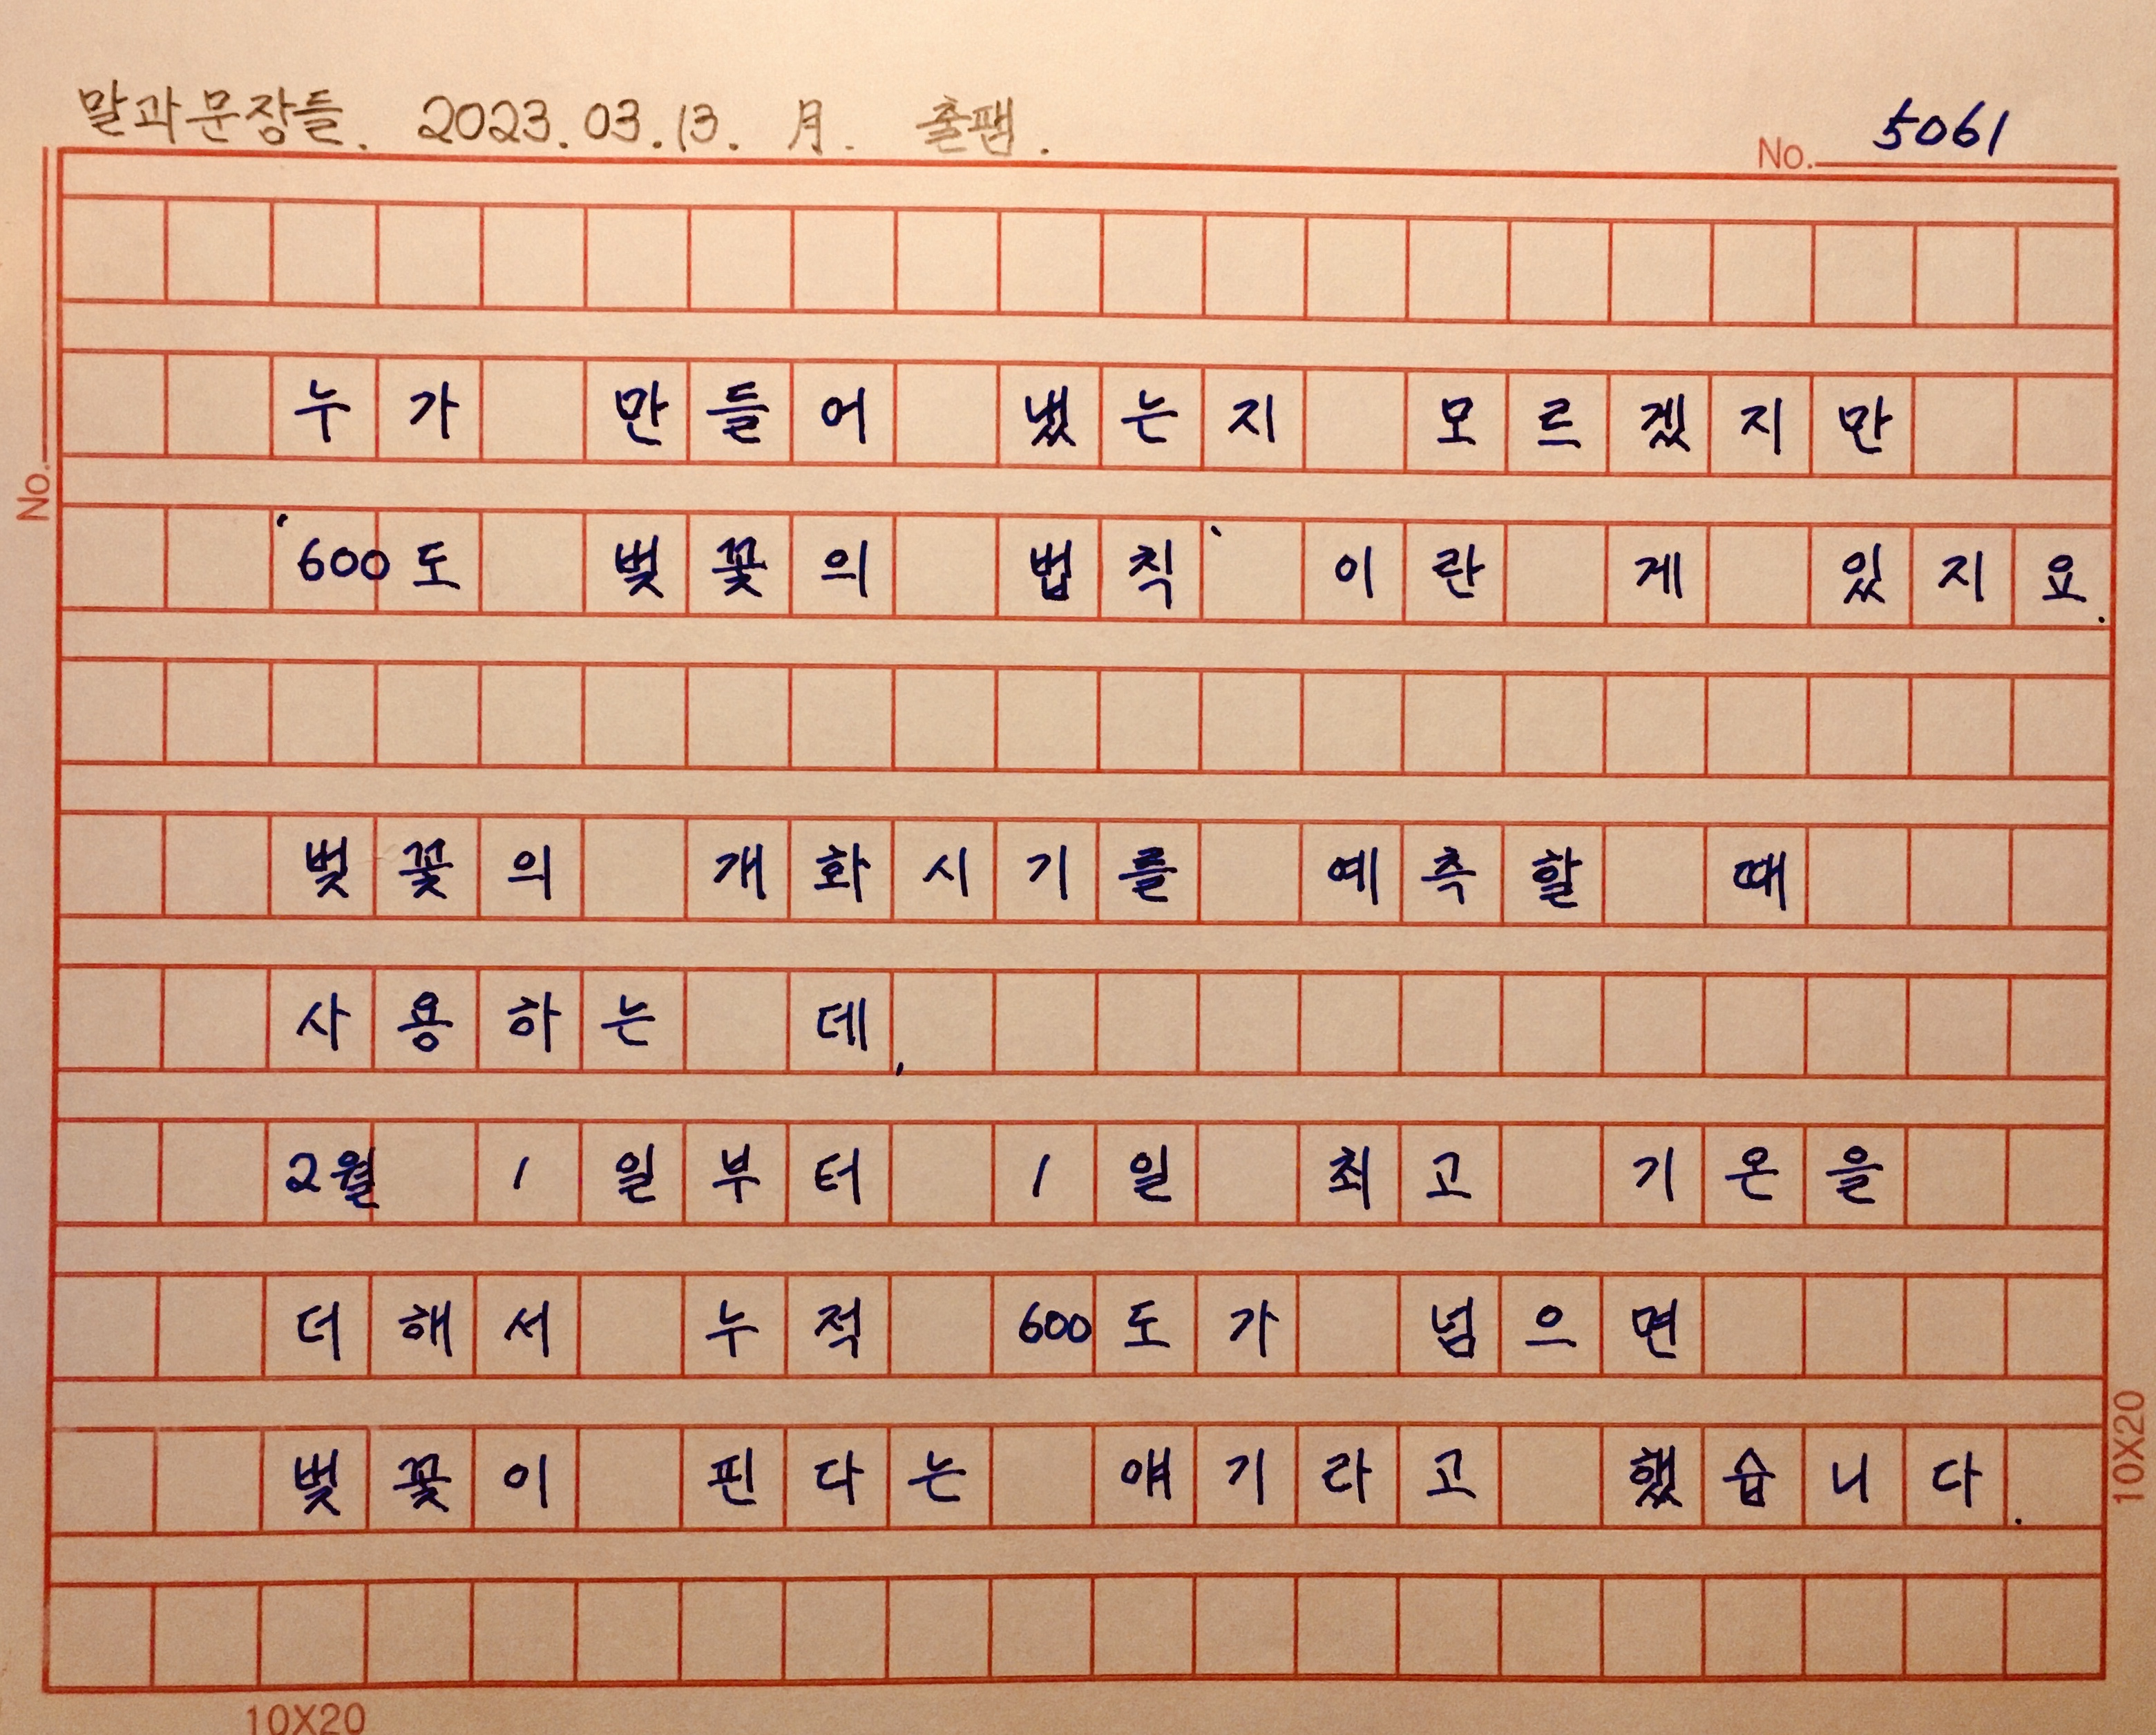 말과 문장들. 2023.03.13. 月. 출팸.
No. 5061
No.
누가 만들어 냈는지 모르겠지만
'600도 벚꽃의 법칙' 이란 게 있지요.
벚꽃의 개화시기를 예측할 때
사용하는 데,
2월 1일부터 1일 최고 기온을
더해서 누적 600도가 넘으면
벚꽃이 핀다는 얘기라고 했습니다.
10X20
10X20